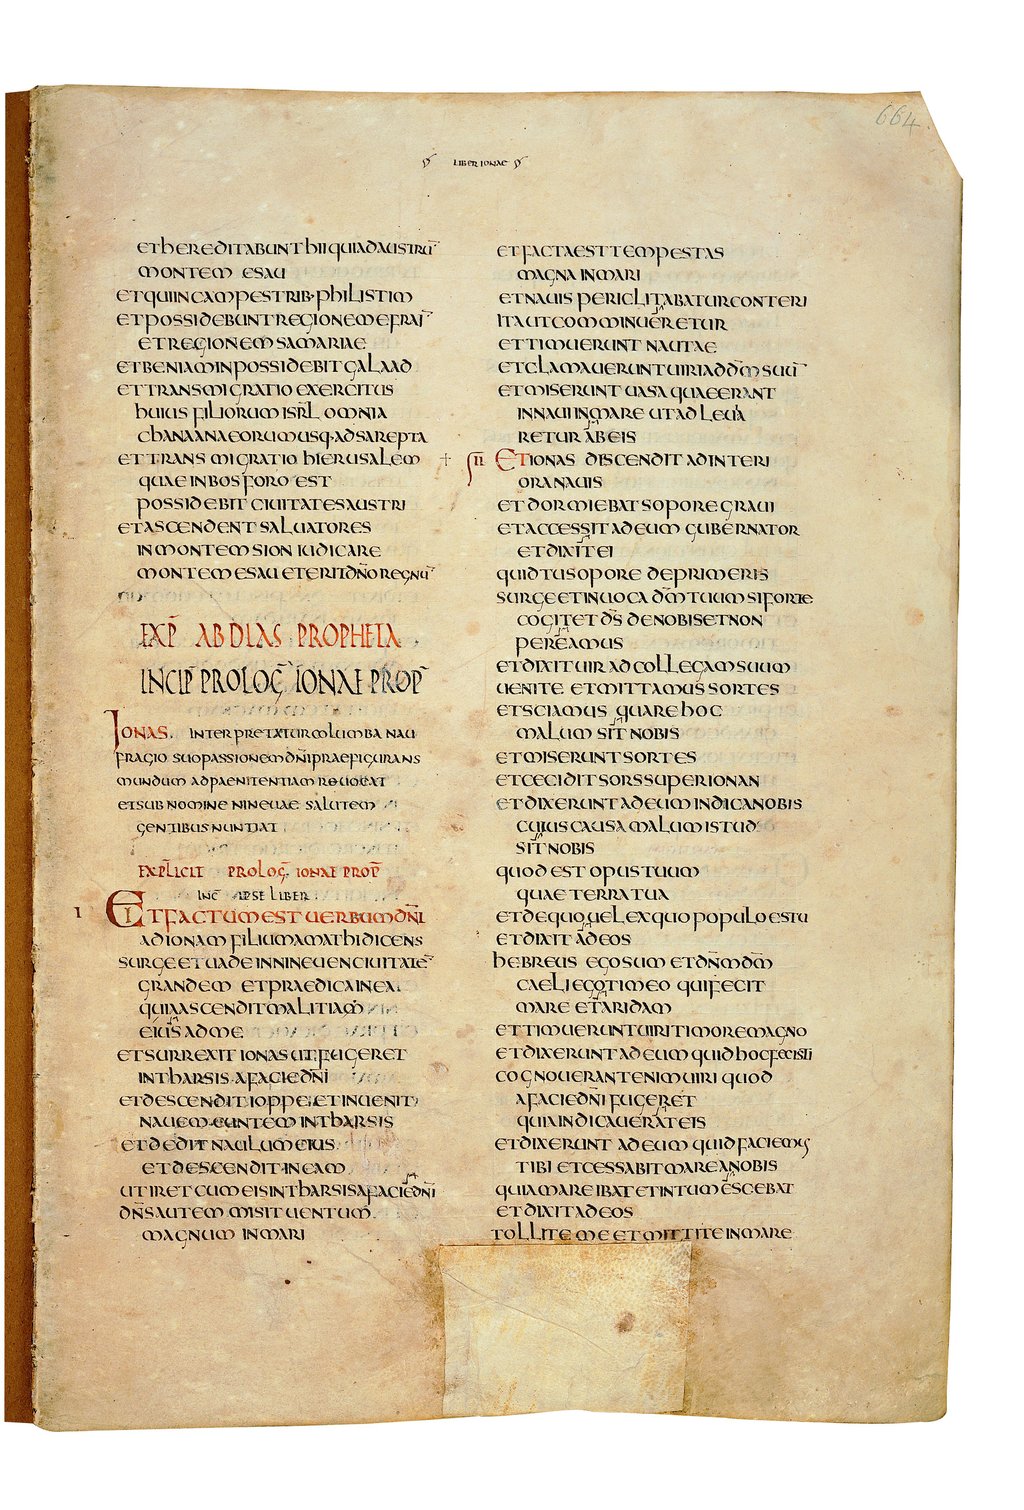 664
LIBER IONAE
ET HEREDITABUNT HII QUI AD AUSTRŪ
MONTEM ESAU
ET QUI IN CAMPESTRIB· PHILISTIM
ET POSSIDEBUNT REGIONEM EFRAI̅
ET REGIONEM SAMARIAE
ET BENIAMIN POSSIDEBIT GALAAD
ET TRANSMIGRATIO EXERCITUS
HUIUS FILIORUM ISRL̅ OMNIA
CHANAANAEORUM USQ· AD SAREPTA
ET TRANSMIGRATIO HIERUSALEM
QUAE IN BOSFORO EST
POSSIDEBIT CIUITATES AUSTRI
ET ASCENDENT SALUATORES
IN MONTEM SION IUDICARE
MONTEM ESAU ET ERIT DN̅O REGNŪ
EXP̅ ABDIAS PROPHETA
INCIP̅ PROLOG̅ IONAE PROP̅
IONAS INTERPRETATUR COLUMBA NAU
FRAGIO SUO PASSIONEM DN̅I PRAEFIGURANS
MUNDUM AD PAENITENTIAM REUOCAT
ET SUB NOMINE NINEUAE SALUTEM
GENTIBUS NUNTIAT
EXPLICIT PROLOG̅ IONAE PROP̅
INC̅ IPSE LIBER
I ET FACTUM EST UERBUM DN̅I
AD IONAM FILIUM AMATHI DICENS
SURGE ET UADE IN NINEUEN CIUITATĒ
GRANDEM ET PRAEDICA IN EA
QUIA ASCENDIT MALITIA
EIUS AD ME
ET SURREXIT IONAS UT FUGERET
IN THARSIS A FACIE DN̅I
ET DESCENDIT IOPPE ET INUENIT
NAUEM EUNTEM IN THARSIS
ET DEDIT NAULUM EIUS
ET DESCENDIT IN EAM
UT IRET CUM EIS IN THARSIS A FACIE DN̅I
DN̅S AUTEM MISIT UENTUM
MAGNUM IN MARI
ET FACTA EST TEMPESTAS
MAGNA IN MARI
ET NAUIS PERICLITABATUR CONTERI
ITA UT COMMINUERETUR
ET TIMUERUNT NAUTAE
ET CLAMAUERUNT UIRI AD DM̅ SUŪ
ET MISERUNT UASA QUAE ERANT
IN NAUI IN MARE UT AD LEUIA
RETUR AB EIS
II ET IONAS DISCENDIT AD INTERI
ORA NAUIS
ET DORMIEBAT SOPORE GRAUI
ET ACCESSIT AD EUM GUBERNATOR
ET DIXIT EI
QUID TU SOPORE DEPRIMERIS
SURGE ET INUOCA DM̅ TUUM SI FORTE
COGITET DS̅ DE NOBIS ET NON
PEREAMUS
ET DIXIT UIR AD COLLEGAM SUUM
UENITE ET MITTAMUS SORTES
ET SCIAMUS QUARE HOC
MALUM SIT NOBIS
ET MISERUNT SORTES
ET CECIDIT SORS SUPER IONAN
ET DIXERUNT AD EUM INDICA NOBIS
CUIUS CAUSA MALUM ISTUD
SIT NOBIS
QUOD EST OPUS TUUM
QUAE TERRA TUA
ET DE QUO UEL EX QUO POPULO ES TU
ET DIXIT AD EOS
HEBREUS EGO SUM ET DN̅M DM̅
CAELI EGO TIMEO QUI FECIT
MARE ET ARIDAM
ET TIMUERUNT UIRI TIMORE MAGNO
ET DIXERUNT AD EUM QUID HOC FECISTI
COGNOUERANT ENIM UIRI QUOD
A FACIE DN̅I FUGERET
QUIA INDICAUERAT EIS
ET DIXERUNT AD EUM QUID FACIEMUS
TIBI ET CESSABIT MARE A NOBIS
QUIA MARE IBAT ET INTUMESCEBAT
ET DIXIT AD EOS
TOLLITE ME ET MITTITE IN MARE